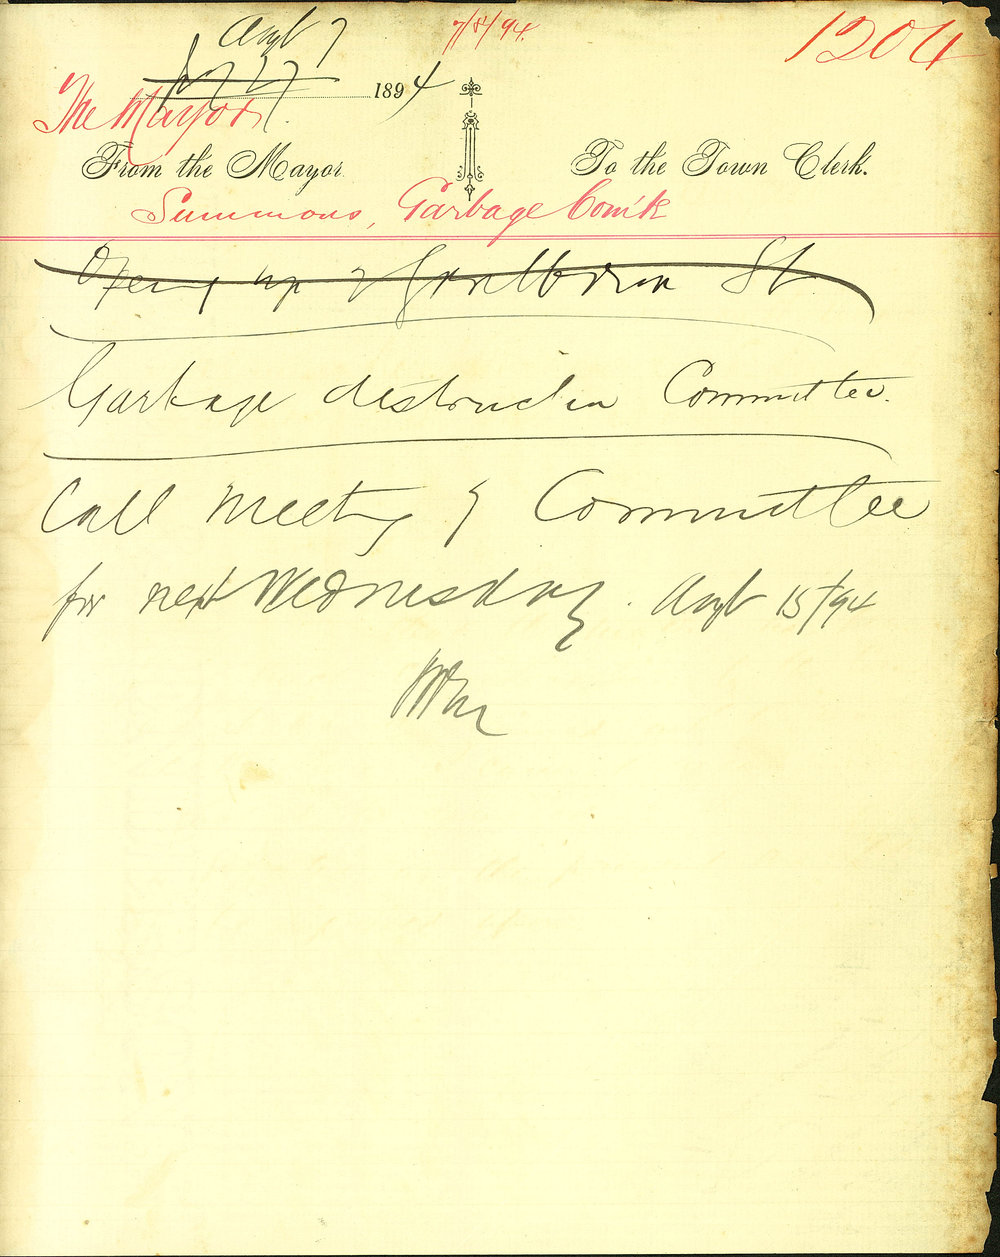 Augt 7 7/8/94. 1204
July 27 1894
The Mayor.
From the Mayor. To the Town Clerk.
Summons, Garbage Comte
Opening up of Goulburn St.
Garbage destruction Committee.
Call meeting of Committee
for next Wednesday. Augt 15/94